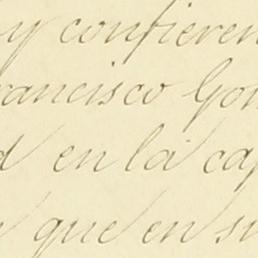 y confieren
rancisco Gon
d en la cap
que en su